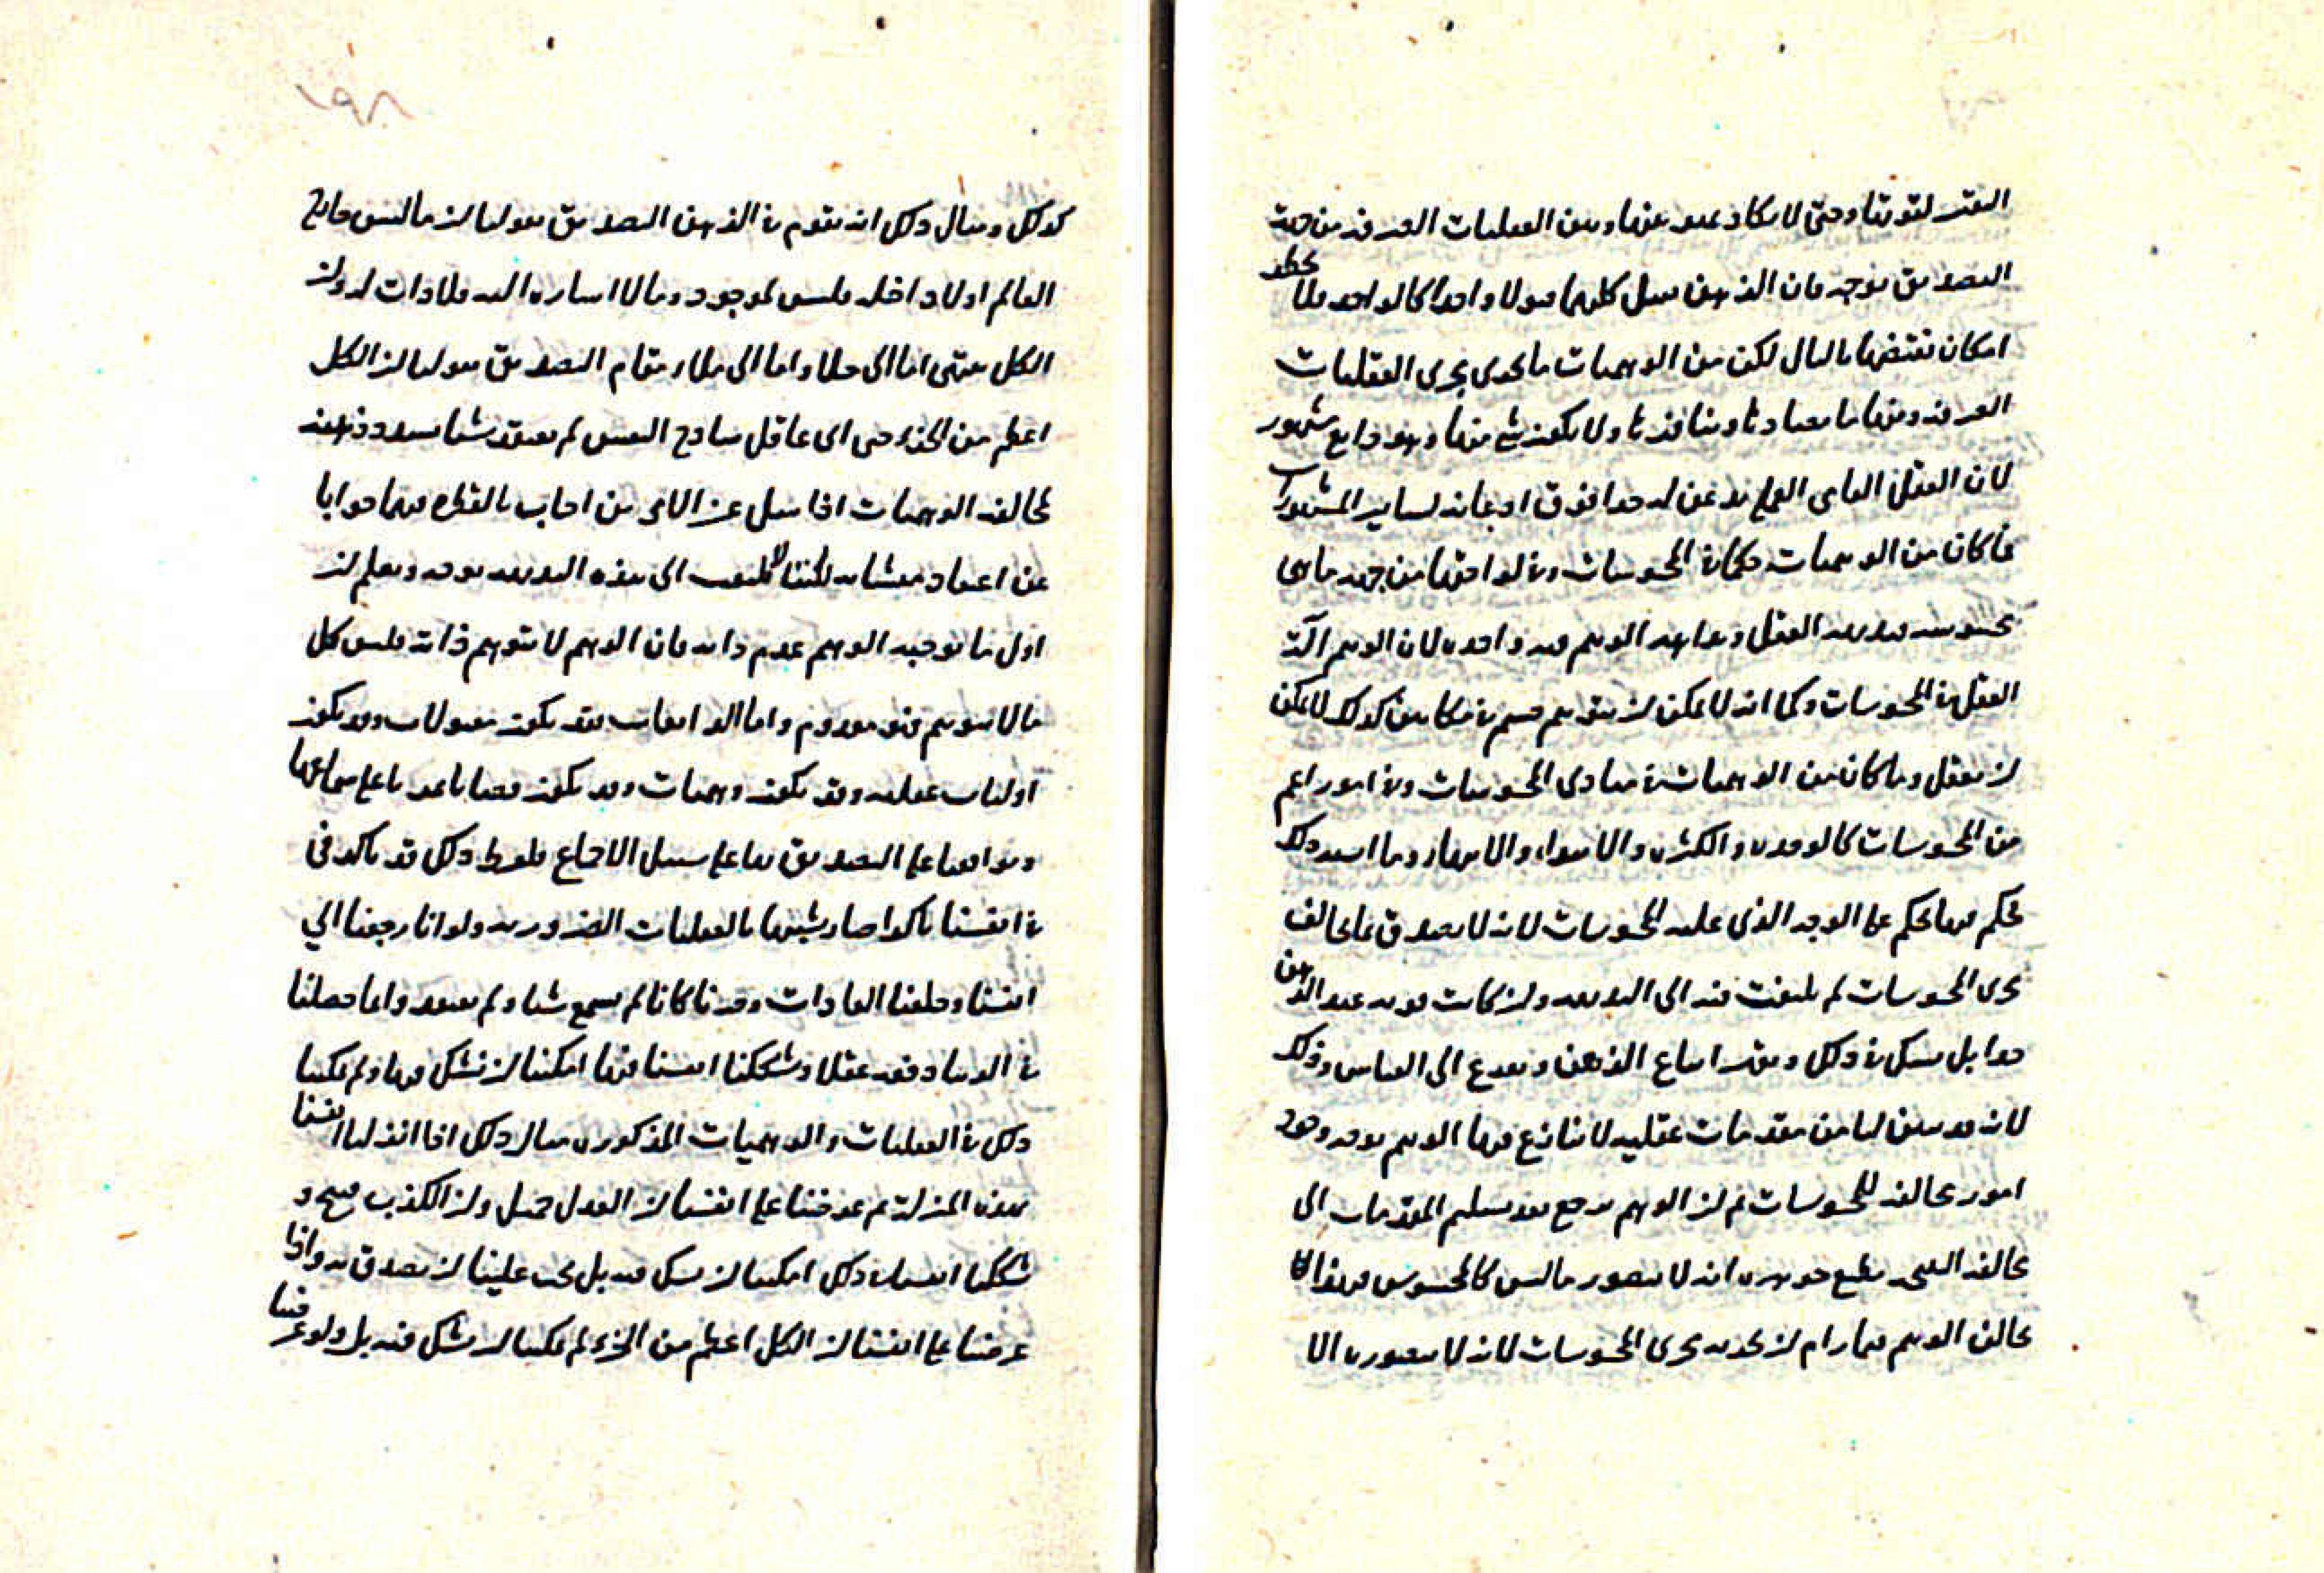 النفس لقوتها وحتى لا يكاد يميز بينها وبين العقليات الصرفة من جهة
التصديق بوجه فان الذهن يقبل كليهما قبولا واحدا كالواحد فلا يخطر
امكان نقيضها بالبال لكن من الوهميات ما يجرى مجرى العقليات
الصرفة ومنها ما يضادها وينافيها ولا يكون شئ منها وهو ذايع مشهور
لان العقل العامى العمى يذعن له جدا فوق اذعانه لساير المشهورات
فما كان من الوهميات حكما فى المحسوسات وفى لواحقها من جهة ما هى
محسوسة فبديهة العقل وبداهة الوهم فيه واحدة لان الوهم آلة
العقل فى المحسوسات وكما انه لا يمكن ان يتوهم جسم فى مكانين كذلك لا يمكن
ان يعقل وما كان من الوهميات فى مبادى المحسوسات وفى امور اعم
من المحسوسات كالوحدة والكثرة والابتداء والانتهاء وما اشبه ذلك
يحكم فيها يحكم على الوجه الذى عليه المحسوسات لانه لا يصدق بما يخالف
مجرى المحسوسات لم يلتفت فيه الى البديهة وان كانت قوية عند الذهن
جدا بل يشك فى ذلك ويقف اتباع الذهن ويفزع الى القياس وذلك
لانه قد يتبين لنا من مقدمات عقلية لا ينازع فيها الوهم بوجه وجود
امور مخالفة للمحسوسات ثم ان الوهم يرجع بعد تسليم المقدمات الى
مخالفة النتيجة بطبع جوهره انه لا يتصور ما ليس كالمحسوس فهذا لا
يخالف الوهم فيما رام ان يجريه مجرى المحسوسات لانه لا يتصوره الا
كذلك ومثال ذلك انه يقوم فى الذهن التصديق بقولنا ان ما ليس خارج
العالم او لا داخله فليس بموجود وما لا اشارة اليه فلا ذات له وان
الكل ينتهى اما الى خلا واما الى ملا مقام التصديق بقولنا ان الكل
اعظم من الجزء حتى اى عاقل ساذج النفس لم يعتقد شيئا بسدد ذهنه
مخالفة الوهميات اذا سئل عن الامرين اجاب بالفطرة فيهما جوابا
عن اعتقاد متشابه لكننا لا نلتفت الى هذه البديهة بوجه ونعلم ان
اول ما يوجبه الوهم عدم ذاته فان الوهم لا يتوهم ذاته فليس كل
ما لا يتوهم فهو معدوم واما الذايعات فقد يكون مقبولات وقد يكون
اوليات عقلية وقد يكون وهميات وقد يكون قضايا عدنا على سماعها
وتواضعنا على التصديق بها على سبيل الاجماع فلفرط ذلك قد تاكد فى
فى انفسنا تاكدا صار يشبهها بالعقليات الضرورية ولو انا رجعنا الى
انفسنا وخلعنا العادات وقدرنا كانا لم نسمع شيئا ولم نعتد وانما حصلنا
فى الدنيا دفعة عقلا وشككنا انفسنا فيها امكننا ان نشك فيها ولم يمكننا
ذلك فى العقليات والوهميات المذكورة مثال ذلك اذا انزلنا انفسنا
بهذه المنزلة ثم عرضنا على انفسنا ان العدل جميل وان الكذب قبيح و
شككنا انفسنا فى ذلك امكننا ان نشك فيه بل يجب علينا ان نصدق به واذا
عرضنا على انفسنا ان الكل اعظم من الجزء لم يمكننا ان نشك فيه بل ولو عرضنا